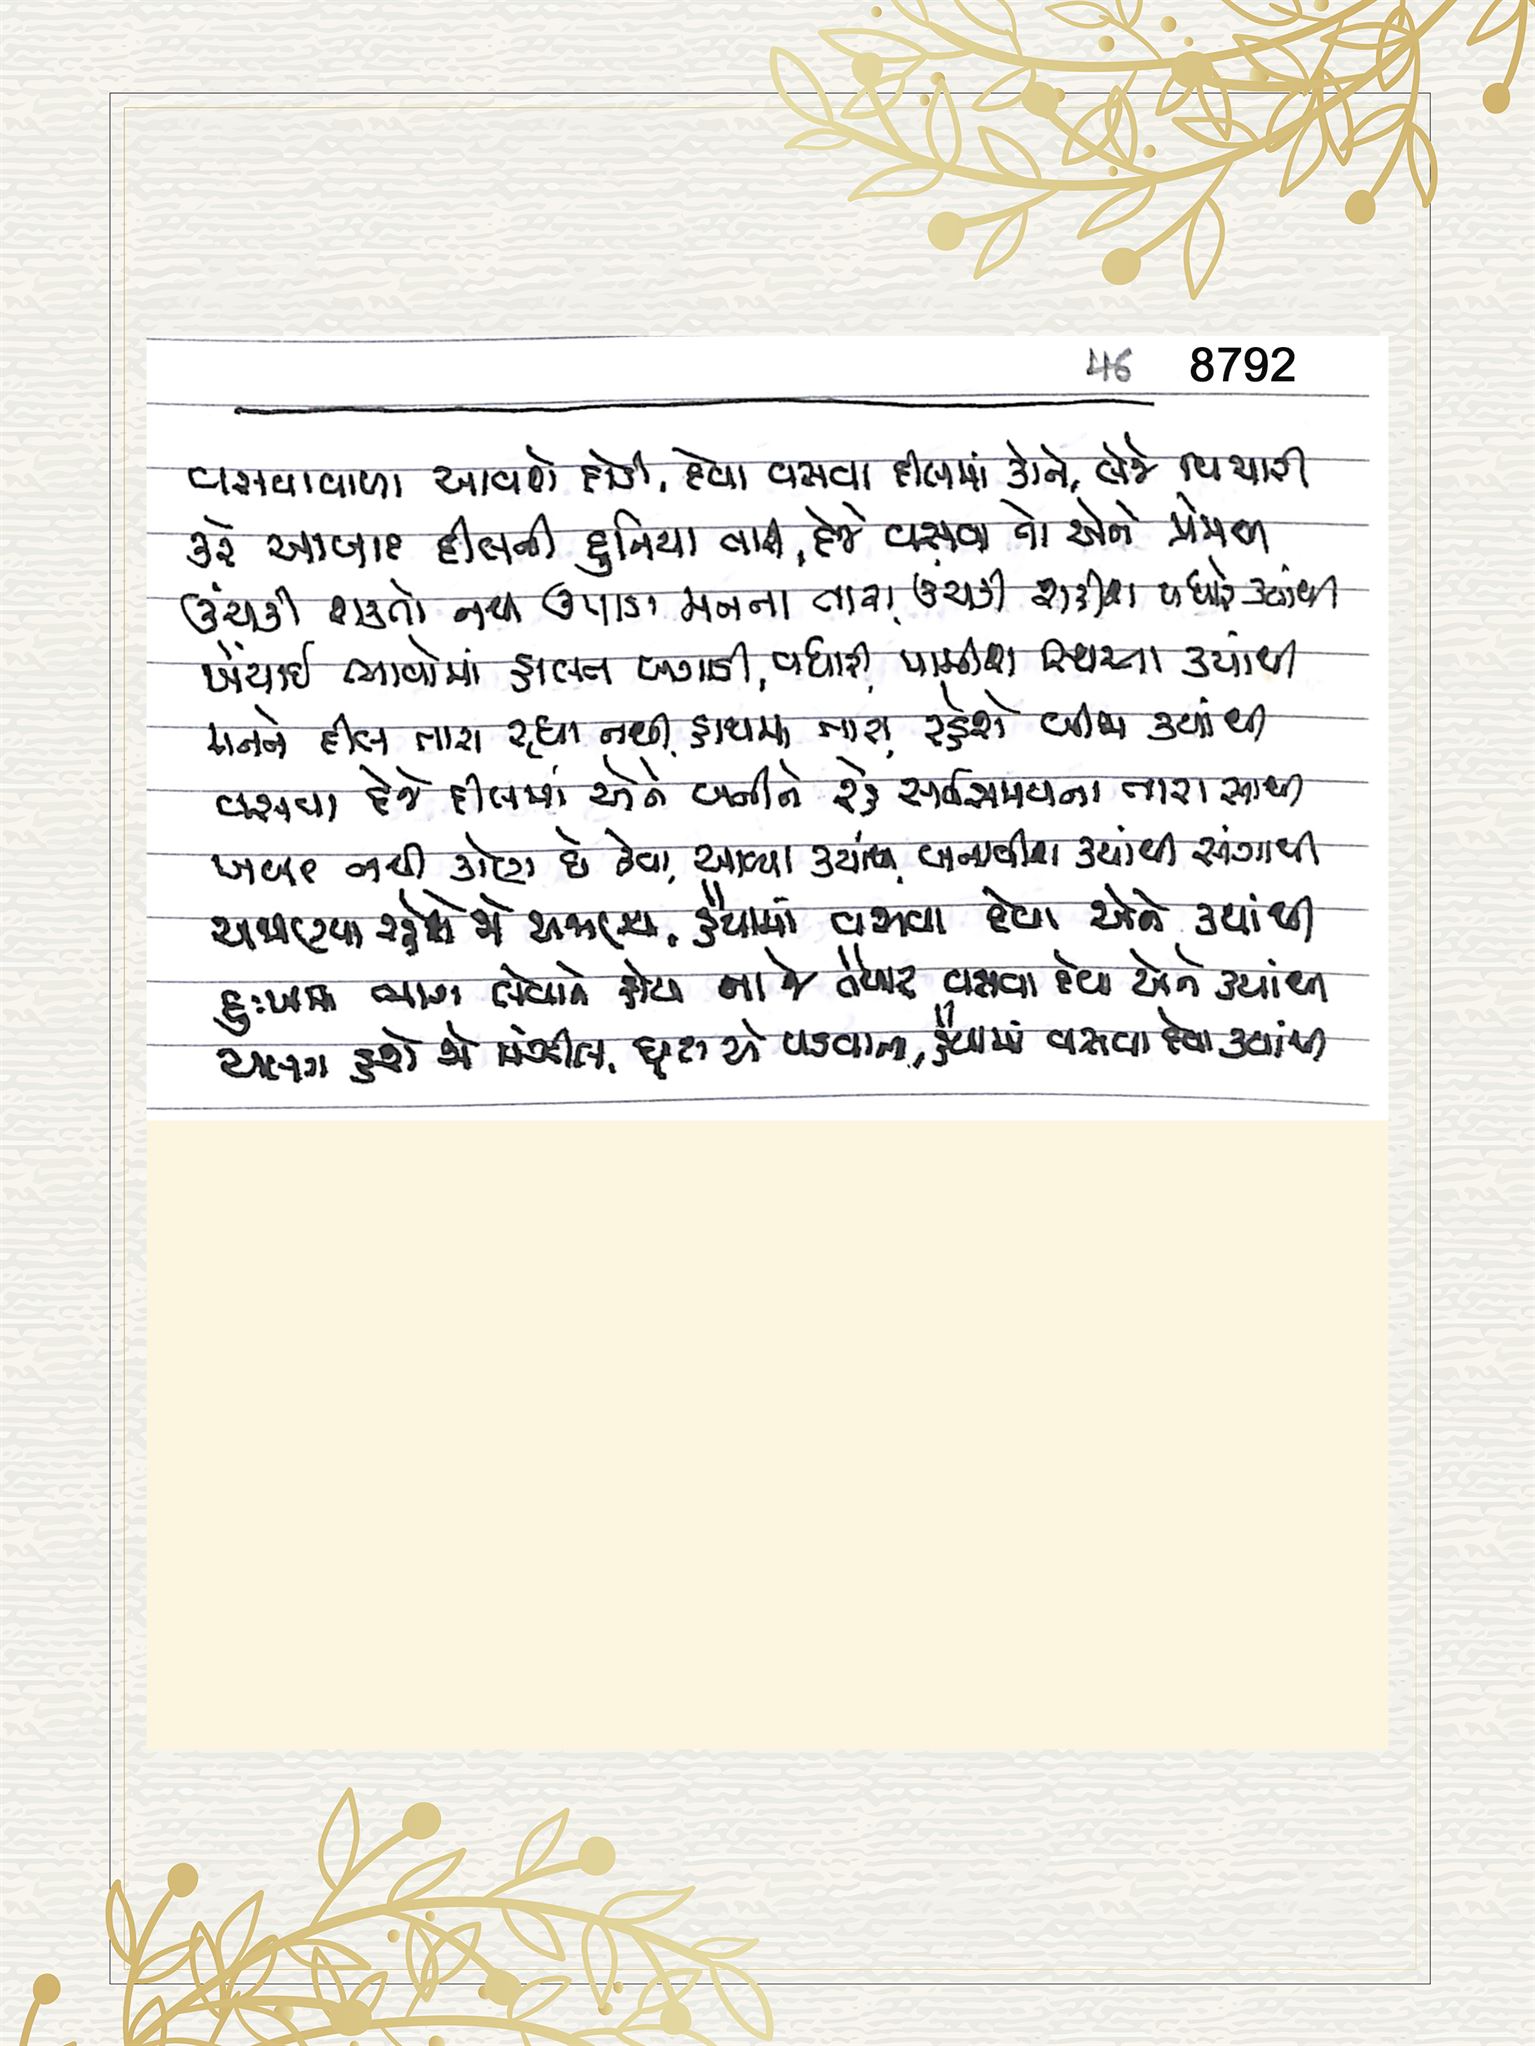 46 8792
વસવાવાળા આવશે દોડી, દેવા વસવા દીલમાં કોને, લેજે વિચારી
કરે આબાદ દીલની દુનિયા તારી, દેજે વસવા તો એને પ્રેમથી
ઉંચકી શકતો નથી ઉપાડા મનના તારા, ઉંચકી શકીશ વધારે ક્યાંથી
ખેંચાઈ ભાવોમાં હાલત બગાડી, વધારી, પામીશ સ્થિરતા ક્યાંથી
મનને દીલ તારા રહ્યા નથી હાથમાં તારા, રહેશે બીજા ક્યાંથી
વસવા દેજે દીલમાં એને બનીને રહે સર્વસમયના તારા સાથી
ખબર નથી કોણ છે કેવા, આવ્યા ક્યાંથી, બનાવીશ ક્યાંથી સંગાથી
અજાણ્યા રહેશે જો અજાણ્યા, હૈયામાં વસવા દેવા એને ક્યાંથી
દુઃખમાં ભાગ લેવાને હોય ના જે તૈયાર વસવા દેવા એને ક્યાંથી
અલગ હશે જો મંઝીલ, છૂટા એ પડવાના, હૈયામાં વસવા દેવા ક્યાંથી